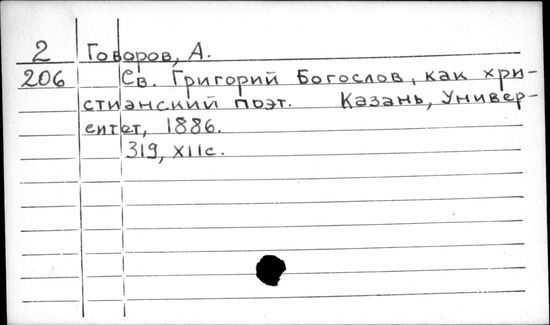 2 Говоров, А.
206 Св. Григорий Богослов, как хри-
стианский поэт. Казань, Универ-
ситет, 1886.
319, XIIс.